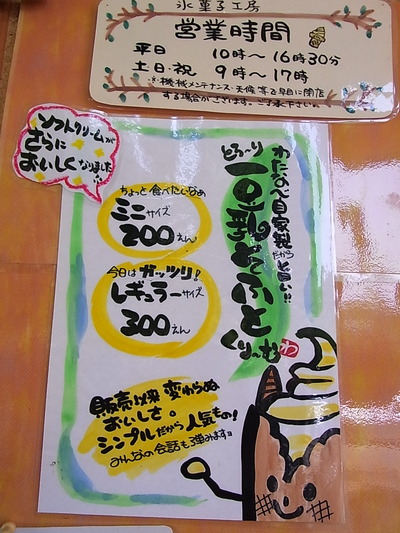 氷菓子工房
営業時間
平日 10時〜16時30分
土日・祝 9時〜17時
※機械メンテナンス・天候等で早目に閉店
する場合がございます。ご了承下さい。
ソフトクリームが
さらに
おいしくなりました!!
わたなべ自家製だから旨い!!
とろ〜り
豆乳そふと
くり〜む
わ
ちょっと食べたいなぁ
ミニサイズ
200えん
今日はガッツリ!
レギュラーサイズ
300えん
販売以来変わらぬ
おいしさ。
シンプルだから人気もの!
みんなの会話も弾みます